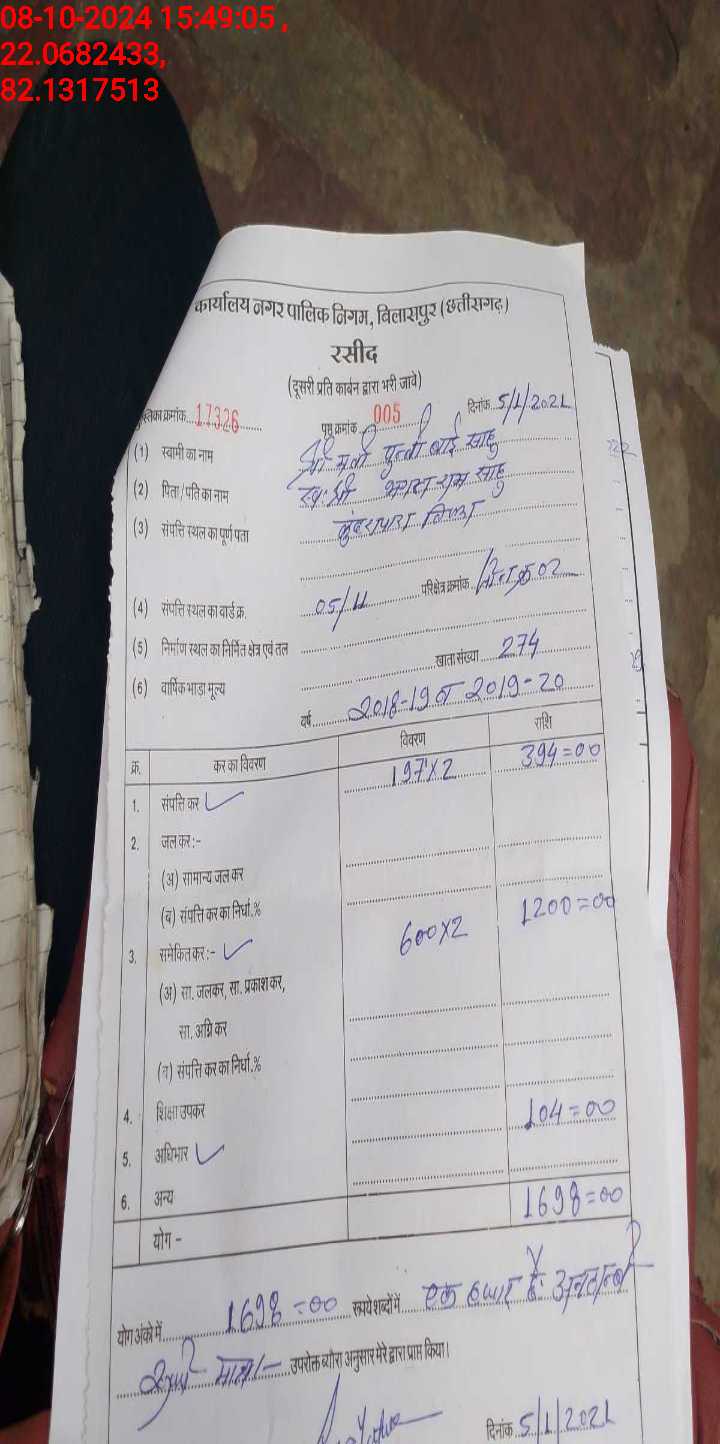 08-10-2024 15:49:05 ,
22.0682433,
82.1317513
कार्यालय नगर पालिक निगम, बिलासपुर (छत्तीसगढ़)
रसीद
(दूसरी प्रति कार्बन द्वारा भरी जावे)
पुस्तिका क्रमांक 17326 पृष्ठ क्रमांक 005 दिनांक 5/1/2021
(1) स्वामी का नाम श्री मती पुन्नी बाई साहू
(2) पिता/पति का नाम स्व. श्री राम साहू
(3) संपत्ति स्थल का पूर्ण पता
(4) संपत्ति स्थल का वार्ड क्र. 05/11 परिक्षेत्र क्रमांक 02
(5) निर्माण स्थल का निर्मित क्षेत्र एवं तल
(6) वार्षिक भाड़ा मूल्य खाता संख्या 274
वर्ष 2018-19 व 2019-20
क्र. कर का विवरण विवरण राशि
1. संपत्ति कर 197x2 394=00
2. जल कर :-
(अ) सामान्य जल कर
(ब) संपत्ति कर का निर्धा.%
3. समेकित कर :- 600x2 1200=00
(अ) सा. जलकर, सा. प्रकाश कर,
सा. अग्नि कर
(ब) संपत्ति कर का निर्धा.%
4. शिक्षा उपकर
5. अधिभार 104=00
6. अन्य
योग - 1698=00
योग अंको में 1698=00 रूपये शब्दों में एक हजार छैः
मात्र/- उपरोक्त ब्यौरा अनुसार मेरे द्वारा प्राप्त किया।
दिनांक 5/1/2021